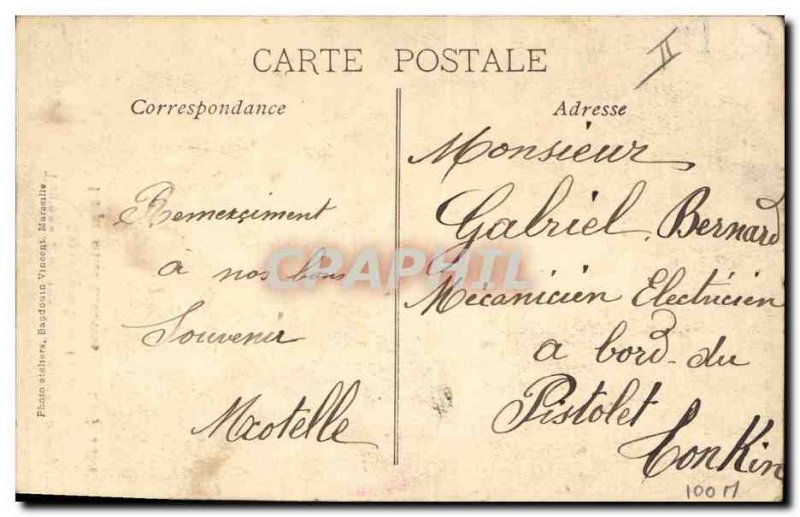 CARTE POSTALE
Correspondance
Remerciment
à nos bons
Souvenir
Adresse
Monsieur
Gabriel Bernard
Mécanicien Electricien
a bord du
Pistolet
Tonkin
II
100 M
Photo ateliers, Baudouin Vincent, Marseille
CPAPHIL